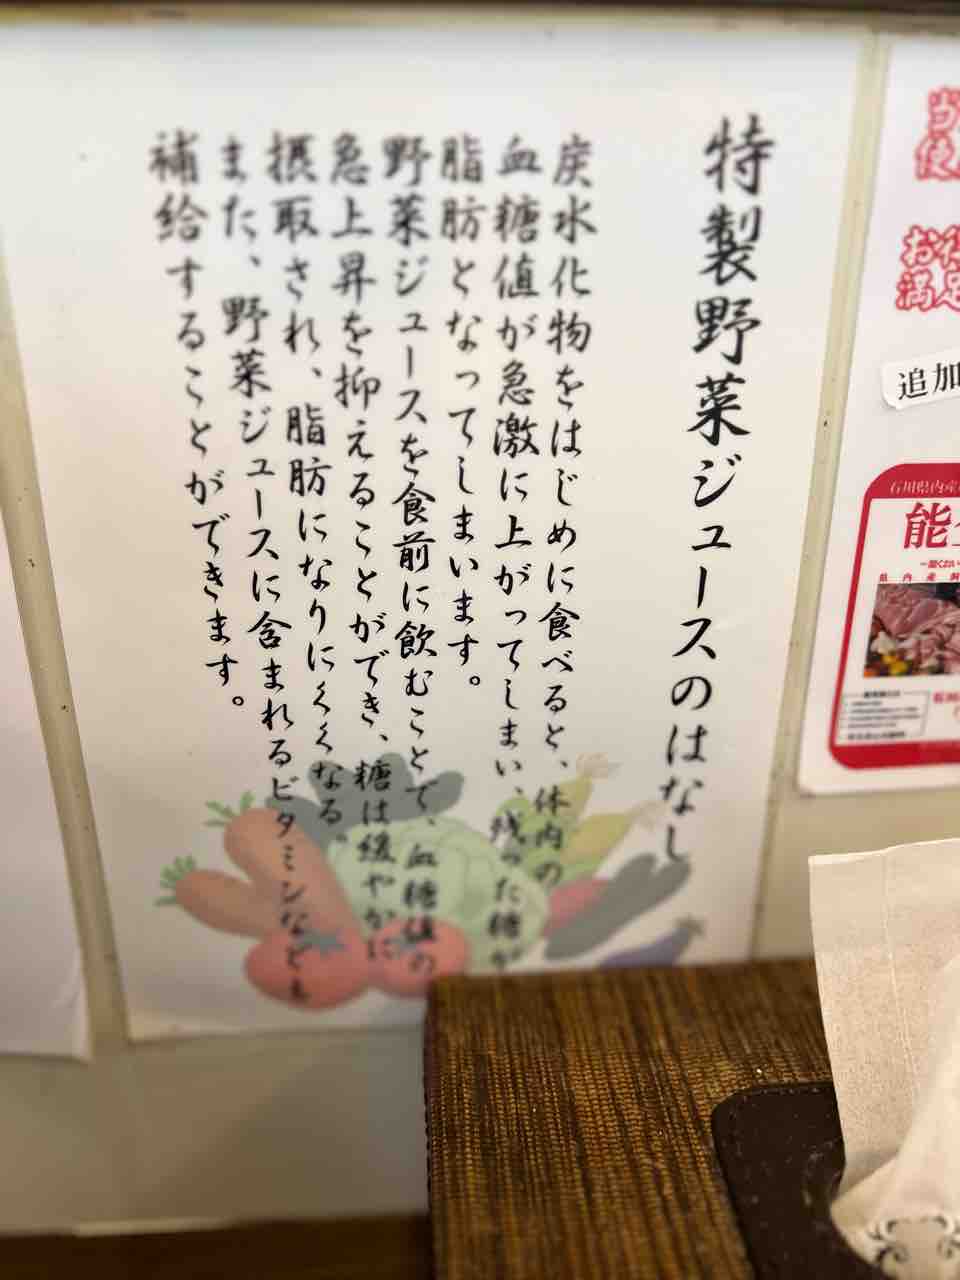 特製野菜ジュースのはなし
炭水化物をはじめに食べると、体内の
血糖値が急激に上がってしまい、残った糖が
脂肪となってしまいます。
野菜ジュースを食前に飲むことで、血糖値の
急上昇を抑えることができ、糖は緩やかに
摂取され、脂肪になりにくくなる。
また、野菜ジュースに含まれるビタミンなども
補給することができます。
追加
石川県内産